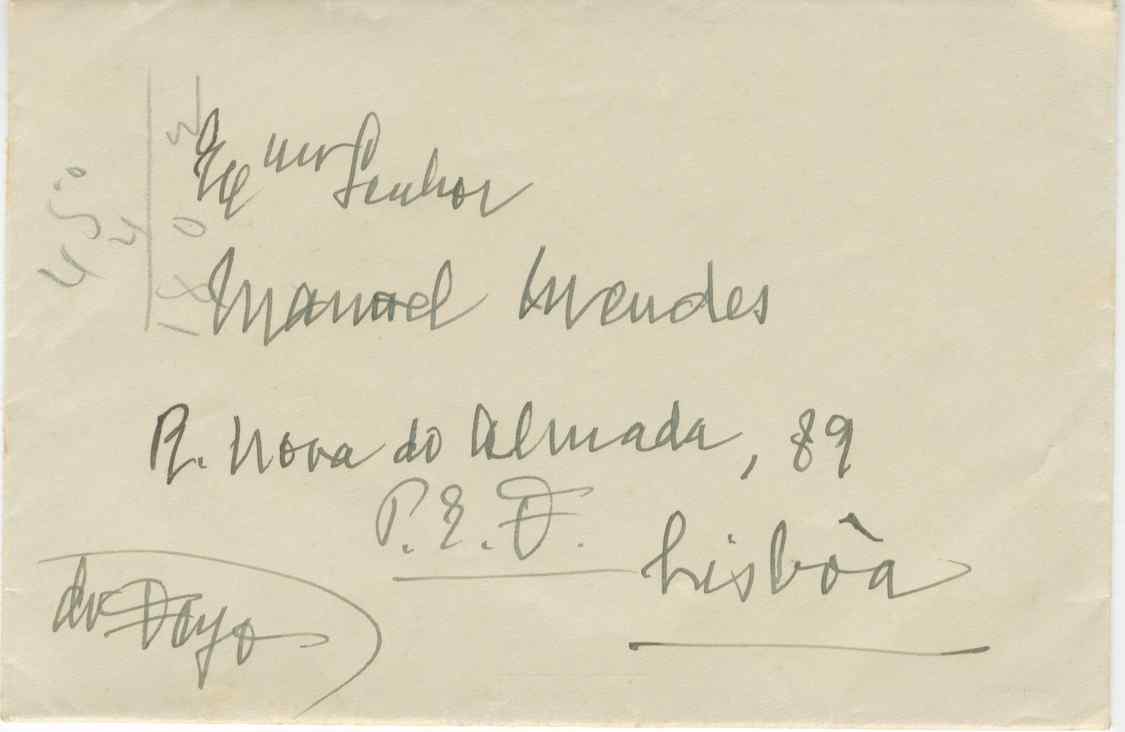 Exmo Senhor
Manuel Mendes
R. Nova do Almada, 89
P. E. F.
Lisbôa
do